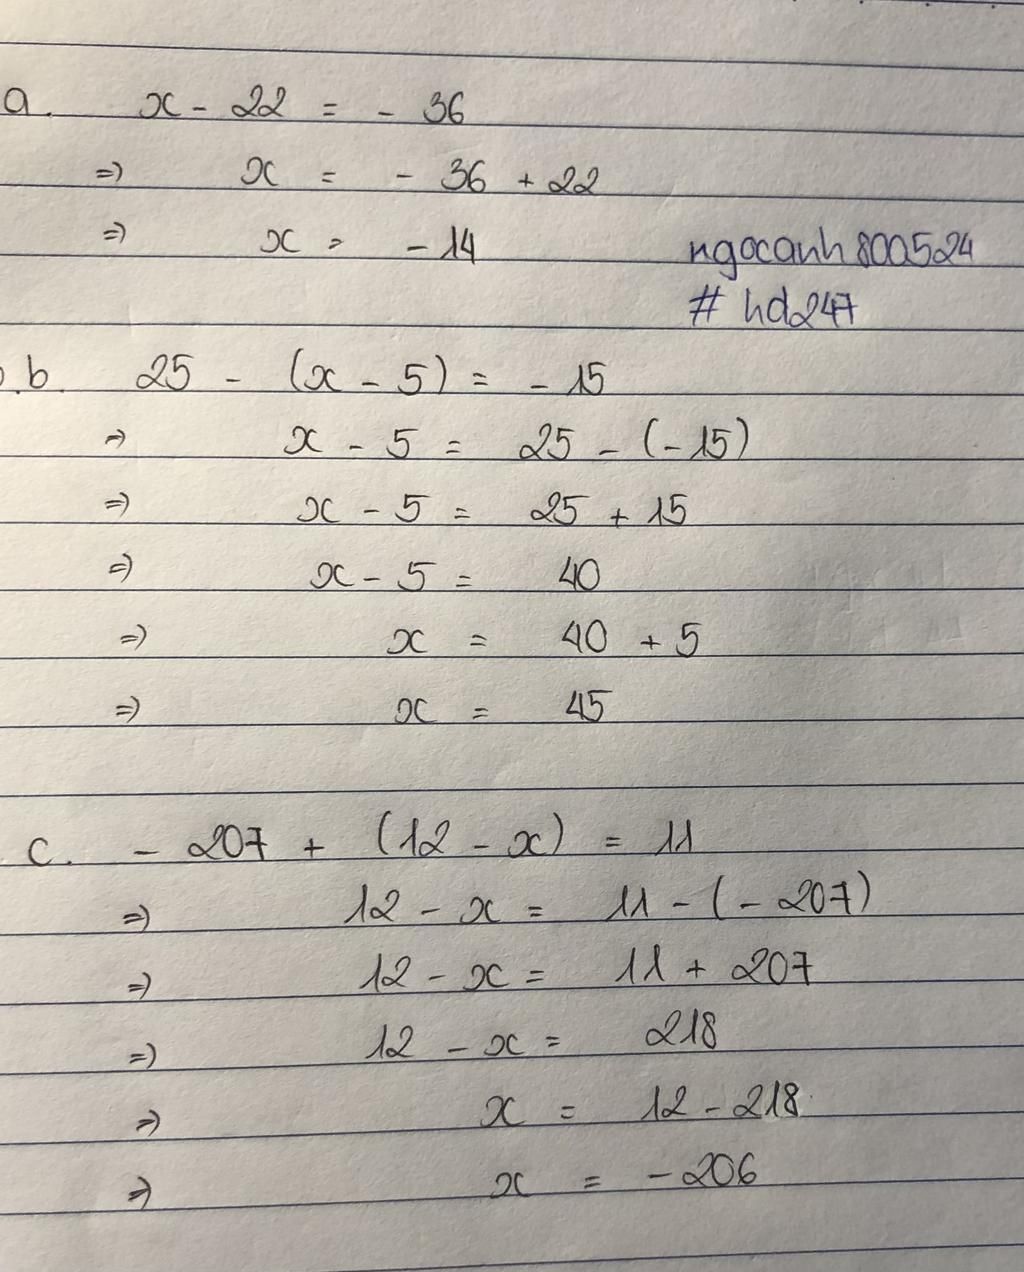 a. x - 22 = - 36
=> x = - 36 + 22
=> x = - 14
ngocanh800524
# hd247
b. 25 - (x - 5) = - 15
=> x - 5 = 25 - (-15)
=> x - 5 = 25 + 15
=> x - 5 = 40
=> x = 40 + 5
=> x = 45
c. - 207 + (12 - x) = 11
=> 12 - x = 11 - (- 207)
=> 12 - x = 11 + 207
=> 12 - x = 218
=> x = 12 - 218
=> x = - 206